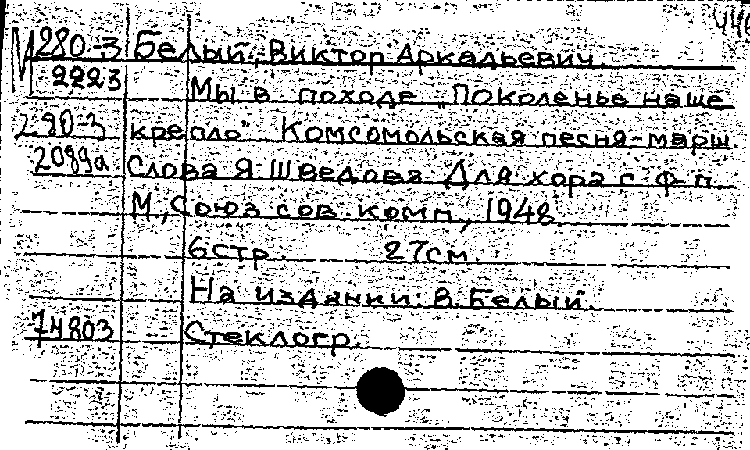 М 280-3 Белый, Виктор Аркадьевич.
2223 Мы в походе „Поколенье наше
280-3 крепло" Комсомольская песня-марш.
2089а Слова Я Шведова Для хора с ф-п.
М., Союз сов. комп., 1948
6стр. 27см.
На издании: В. Белый.
74803 Стеклогр.